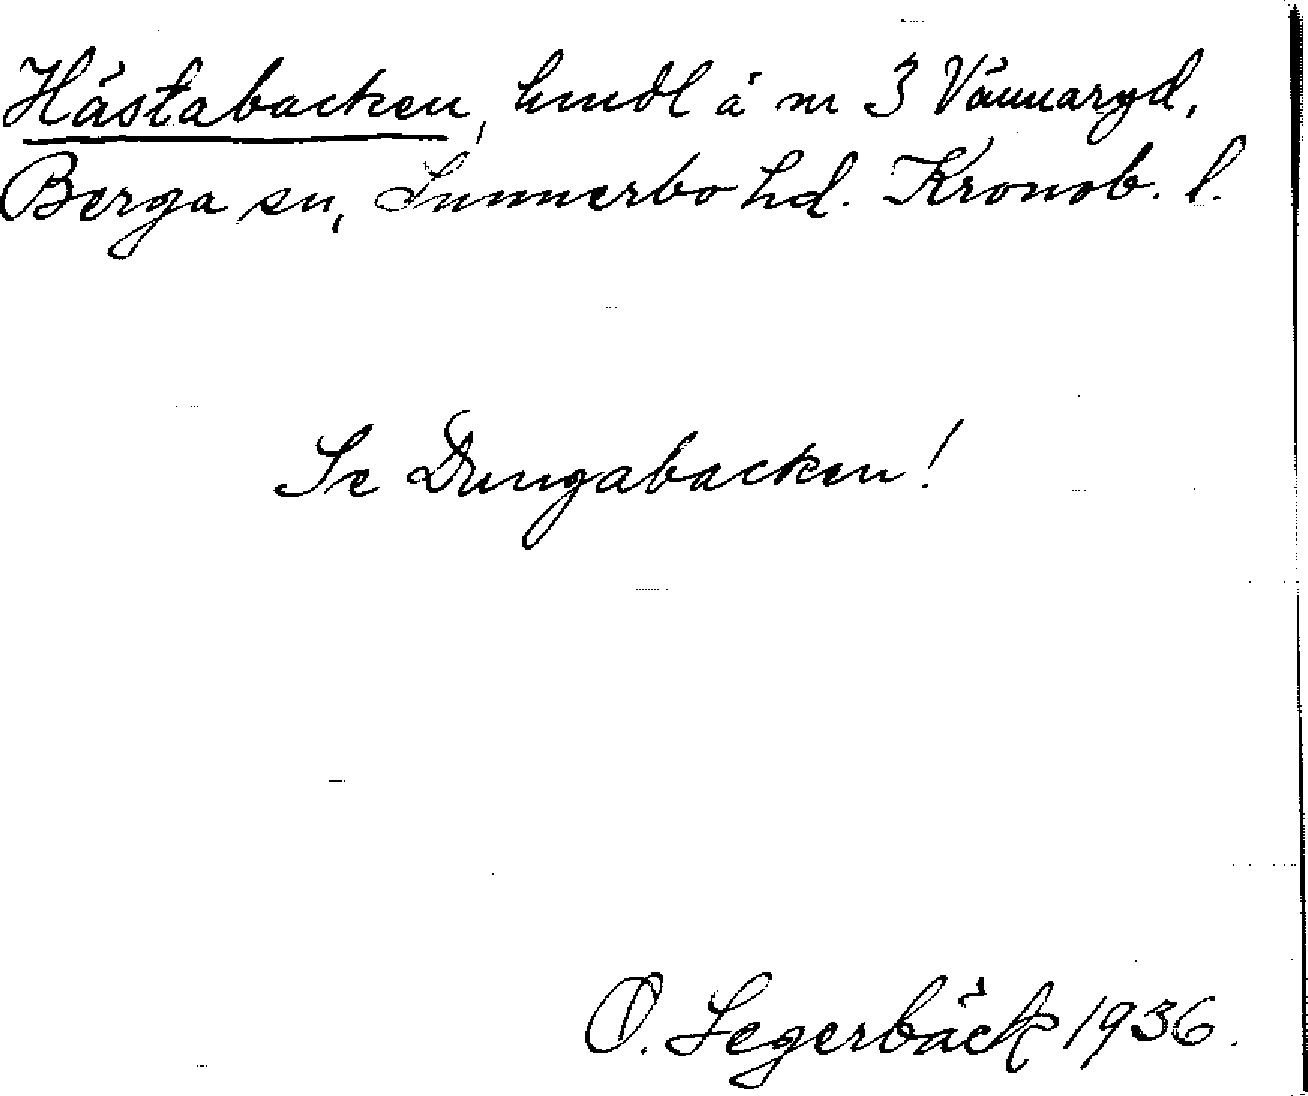 Hästabacken, hmdl å nr 3 Vännaryd,
Berga sn, Sunnerbo hd. Kronob. l.
Se Dungabacken!
O. Segerbäck 1936.